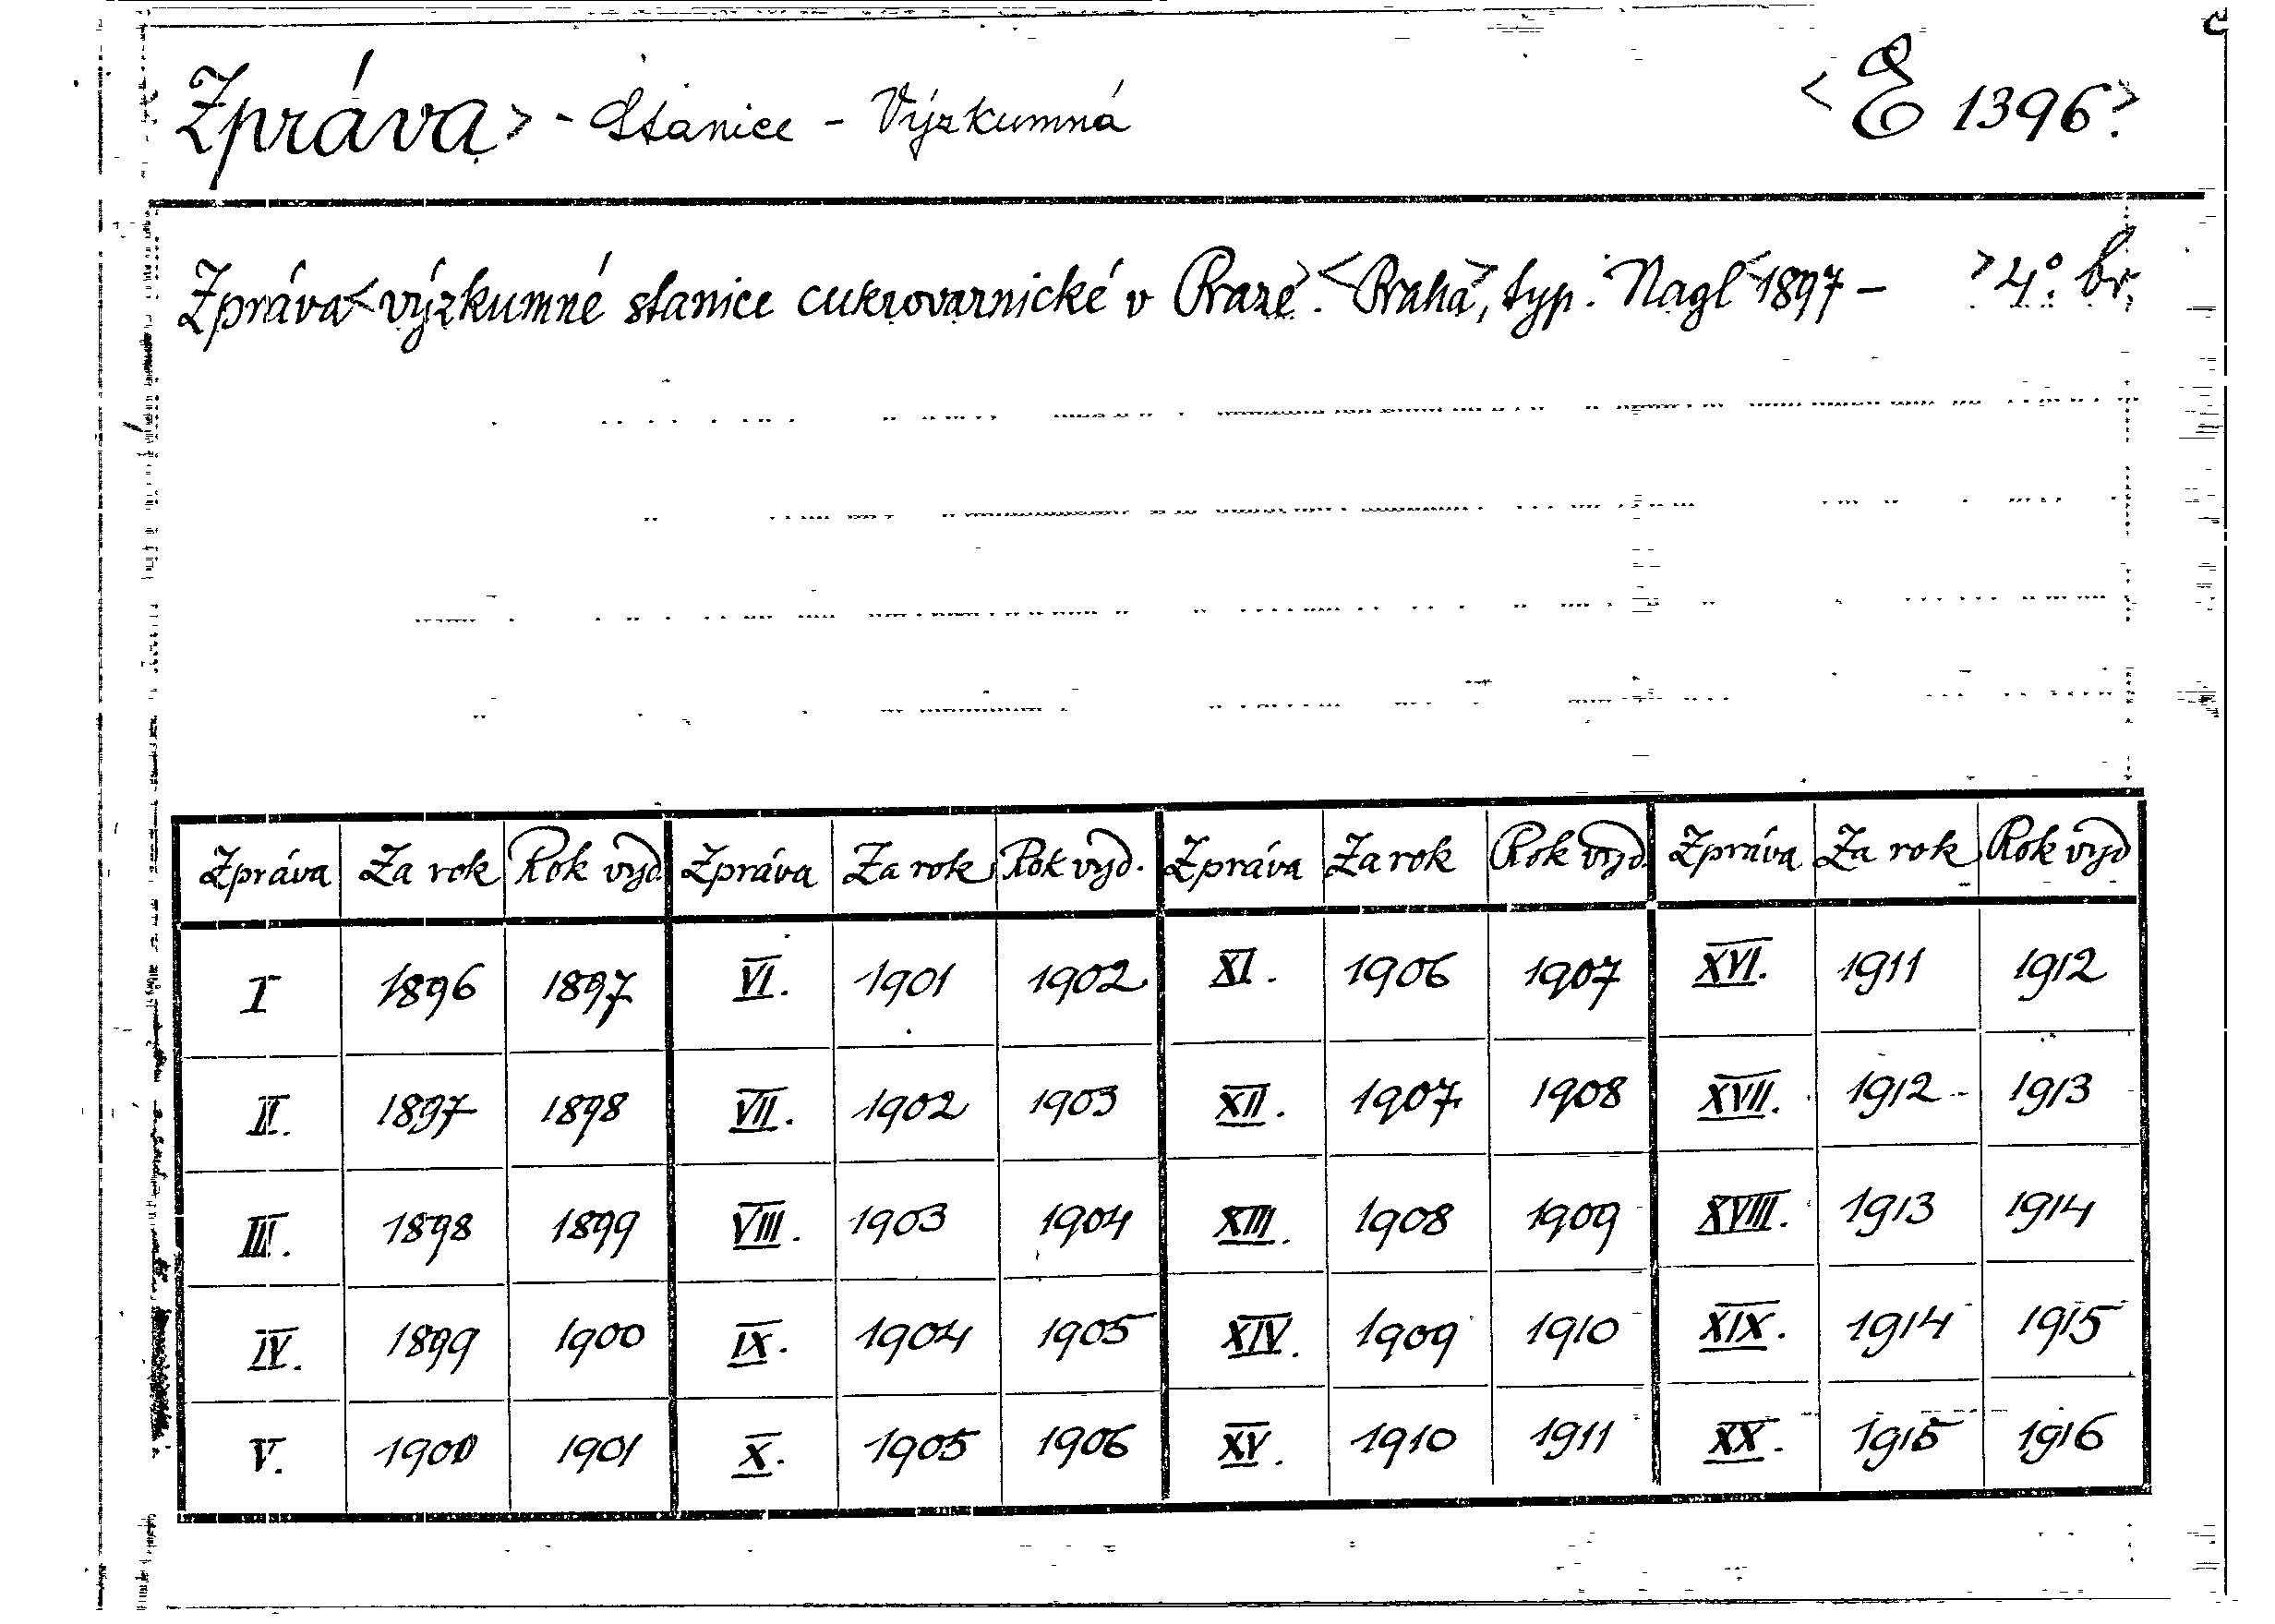 Zpráva> - Stanice - Výzkumná <E 1396>
Zpráva< výzkumné stanice cukrovarnické v Praze>. <Praha>, typ. Nagl <1897 - > 4°. br.
Zpráva Za rok Rok vyd. Zpráva Za rok Rok vyd. Zpráva Za rok Rok vyd. Zpráva Za rok Rok vyd
I 1896 1897 VI. 1901 1902 XI. 1906 1907 XVI. 1911 1912
II. 1897 1898 VII. 1902 1903 XII. 1907 1908 XVII. 1912 1913
III. 1898 1899 VIII. 1903 1904 XIII. 1908 1909 XVIII. 1913 1914
IV. 1899 1900 IX. 1904 1905 XIV. 1909 1910 XIX. 1914 1915
V. 1900 1901 X. 1905 1906 XV. 1910 1911 XX. 1915 1916